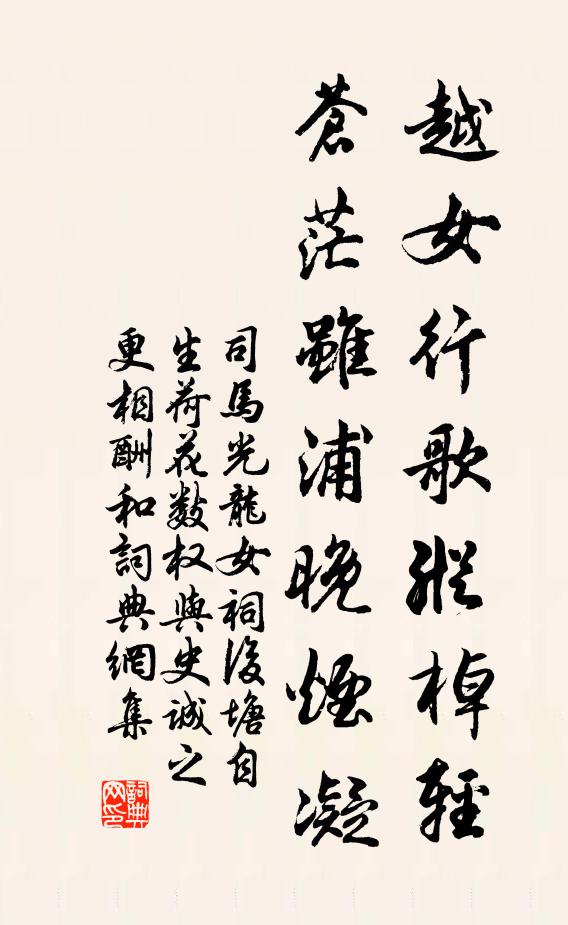 越女行歌縱棹輕
蒼茫雖浦晚煙凝
司馬光龍女祠後塘自
生荷花數权與史誠之
更相酬和詞典網集
詞典
网印